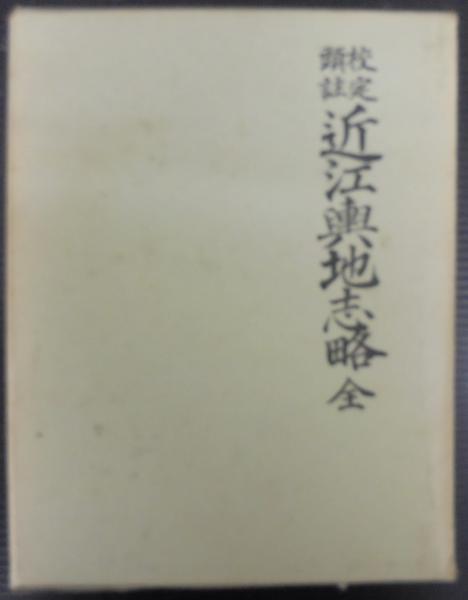 校定
頭註
近江輿地志略 全